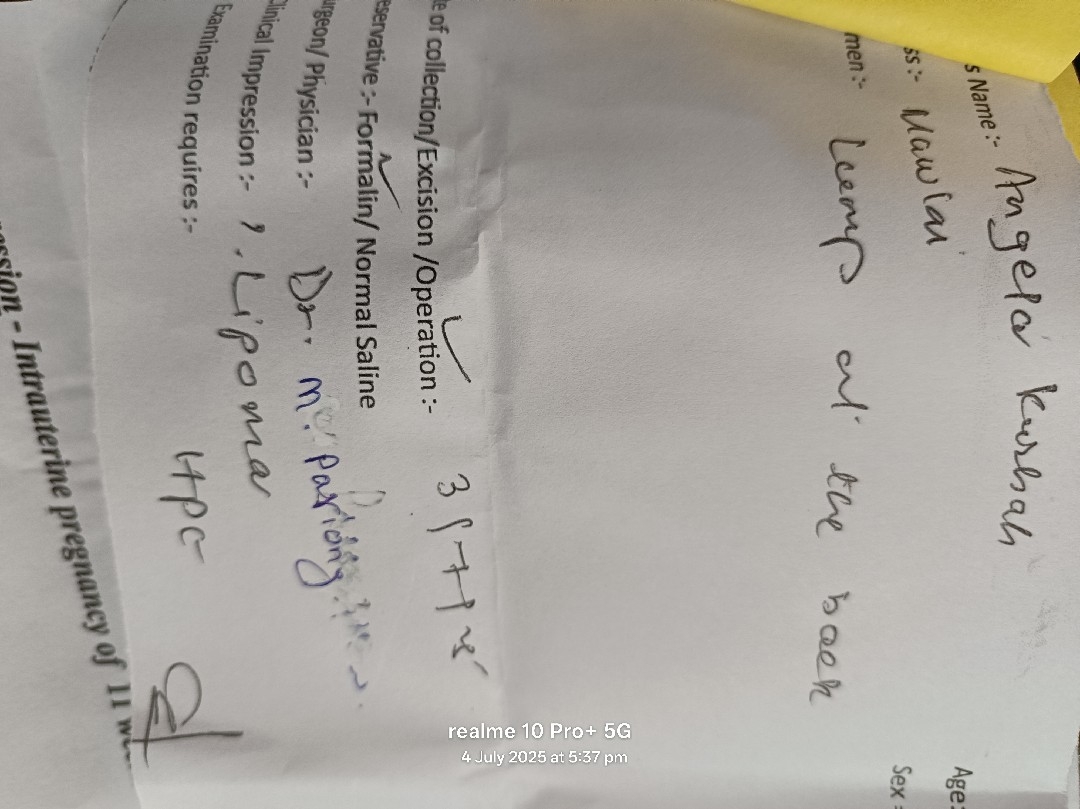 s Name:- Angela Kurbah
Age:
ss:- Mawlai
Sex:
men:- Lump at the back
te of collection/Excision /Operation:- 3/7/25
eservative :- Formalin/ Normal Saline
urgeon/ Physician :- Dr. M. Pariong
Clinical Impression :- ? Lipoma
Examination requires :- HPE
ession - Intrauterine pregnancy of 11 w
realme 10 Pro+ 5G
4 July 2025 at 5:37 pm